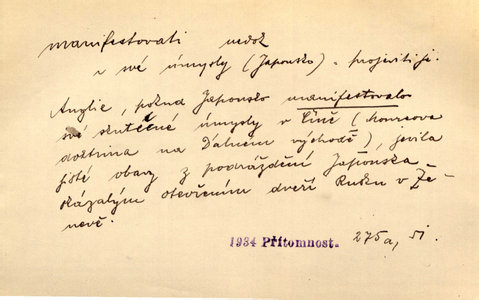 manifestovati nedok
~ své úmysly (Japonsko) = projeviti je.
Anglie, pokud Japonsko manifestovalo
své skutečné úmysly v Číně (monroova
doktrina na Dálném východě), jevila
jisté obavy z podráždění Japonska
okázalým otevřením dveří Rusku v Že-
nevě.
1934 Přítomnost. 275a, Sl.